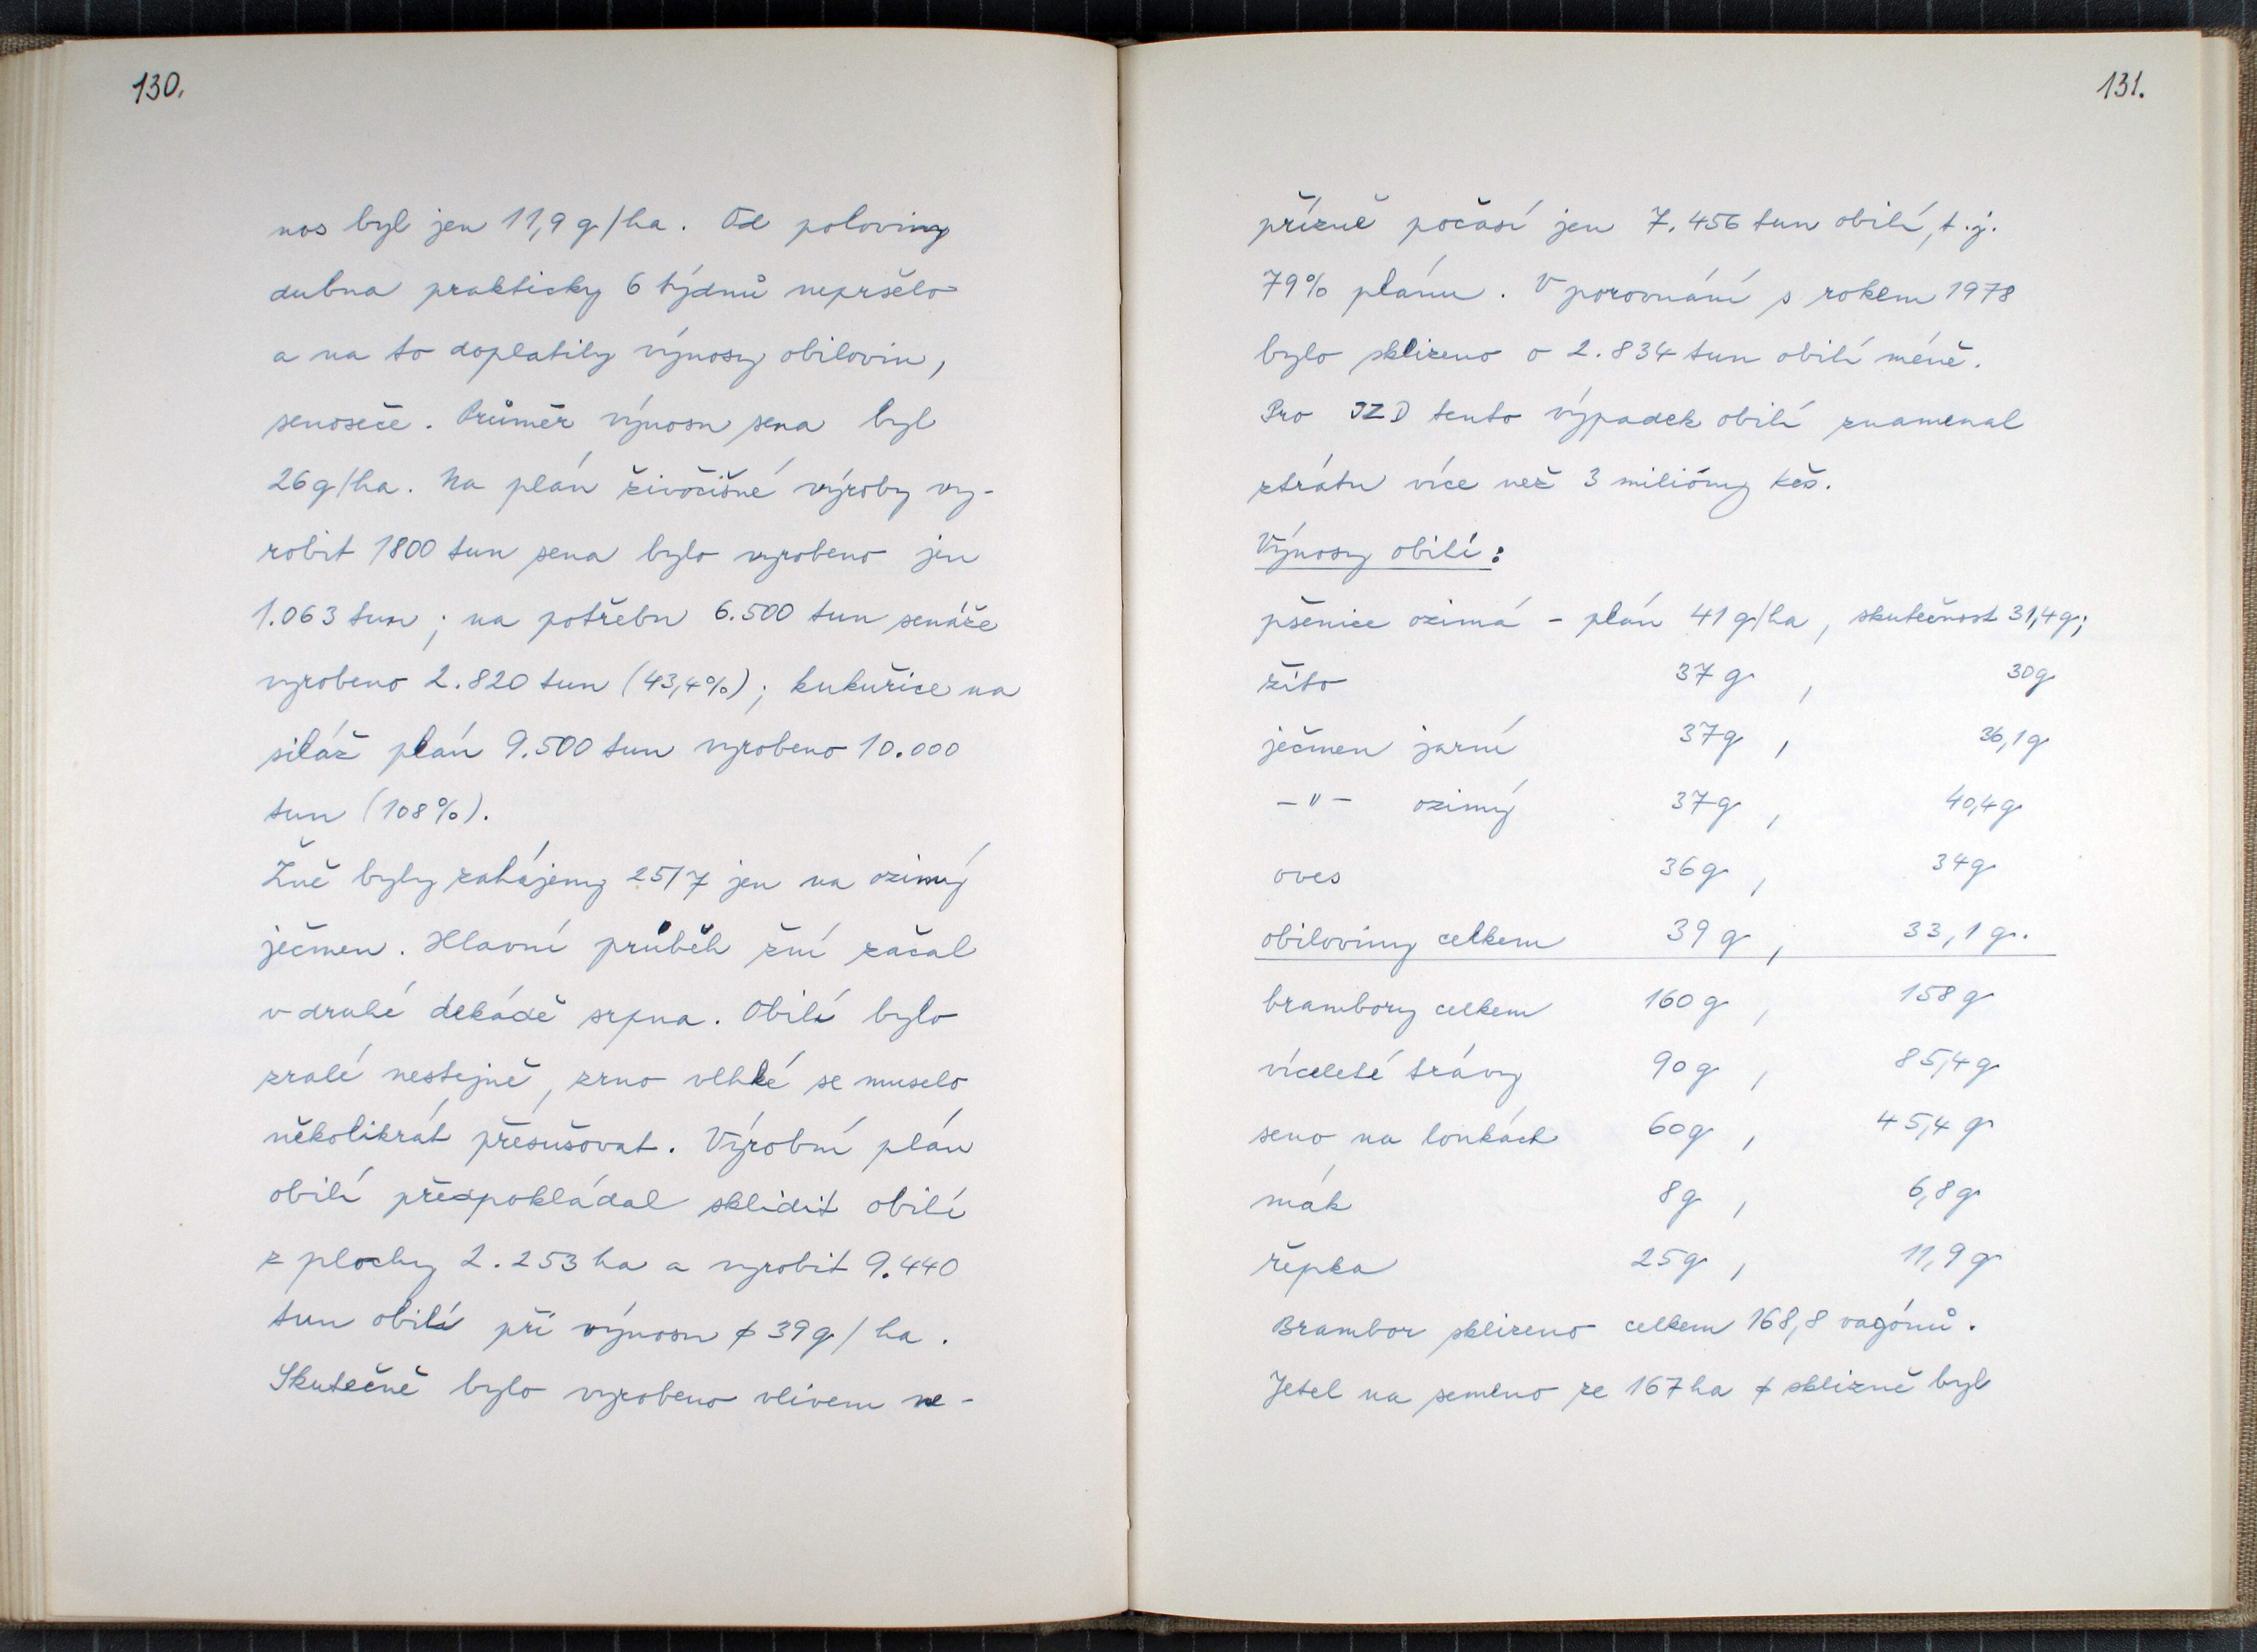 130.
nos byl jen 11,9 q/ha. Od poloviny
dubna prakticky 6 týdnů nepršelo
a na to doplatily výnosy obilovin,
senoseče. Průměr výnosu sena byl
26 q/ha. Na plán živočišné výroby vy-
robit 1800 tun sena bylo vyrobeno jen
1.063 tun; na potřebu 6.500 tun senáže
vyrobeno 2.820 tun (43,4%); kukuřice na
siláž plán 9.500 tun vyrobeno 10.000
tun (108%).
Žně byly zahájeny 25/7 jen na ozimý
ječmen. Hlavní průběh žní začal
v druhé dekádě srpna. Obilí bylo
zralé nestejně, zrno vlhké se muselo
několikrát přesušovat. Výrobní plán
obilí předpokládal sklidit obilí
z plochy 2.253 ha a vyrobit 9.440
tun obilí při výnosu ø 39 q/ha.
Skutečně bylo vyrobeno vlivem ne-
131.
přízně počasí jen 7.456 tun obilí, t.j.
79% plánu. V porovnání s rokem 1978
bylo sklizeno o 2.834 tun obilí méně.
Pro JZD tento výpadek obilí znamenal
ztrátu více než 3 milióny Kčs.
Výnosy obilí:
pšenice ozimá - plán 41 q/ha, skutečnost 31,4 q;
žito 37 q, 30 q
ječmen jarní 37 q, 36,1 q
-"- ozimý 37 q, 40,4 q
oves 36 q, 34 q
obiloviny celkem 39 q, 33,1 q.
brambory celkem 160 q, 158 q
víceleté trávy 90 q, 85,4 q
seno na loukách 60 q, 45,4 q
mák 8 q, 6,8 q
řepka 25 q, 11,9 q
Brambor sklizeno celkem 168,8 vagónů.
Jetel na semeno ze 167 ha ø sklizně byl